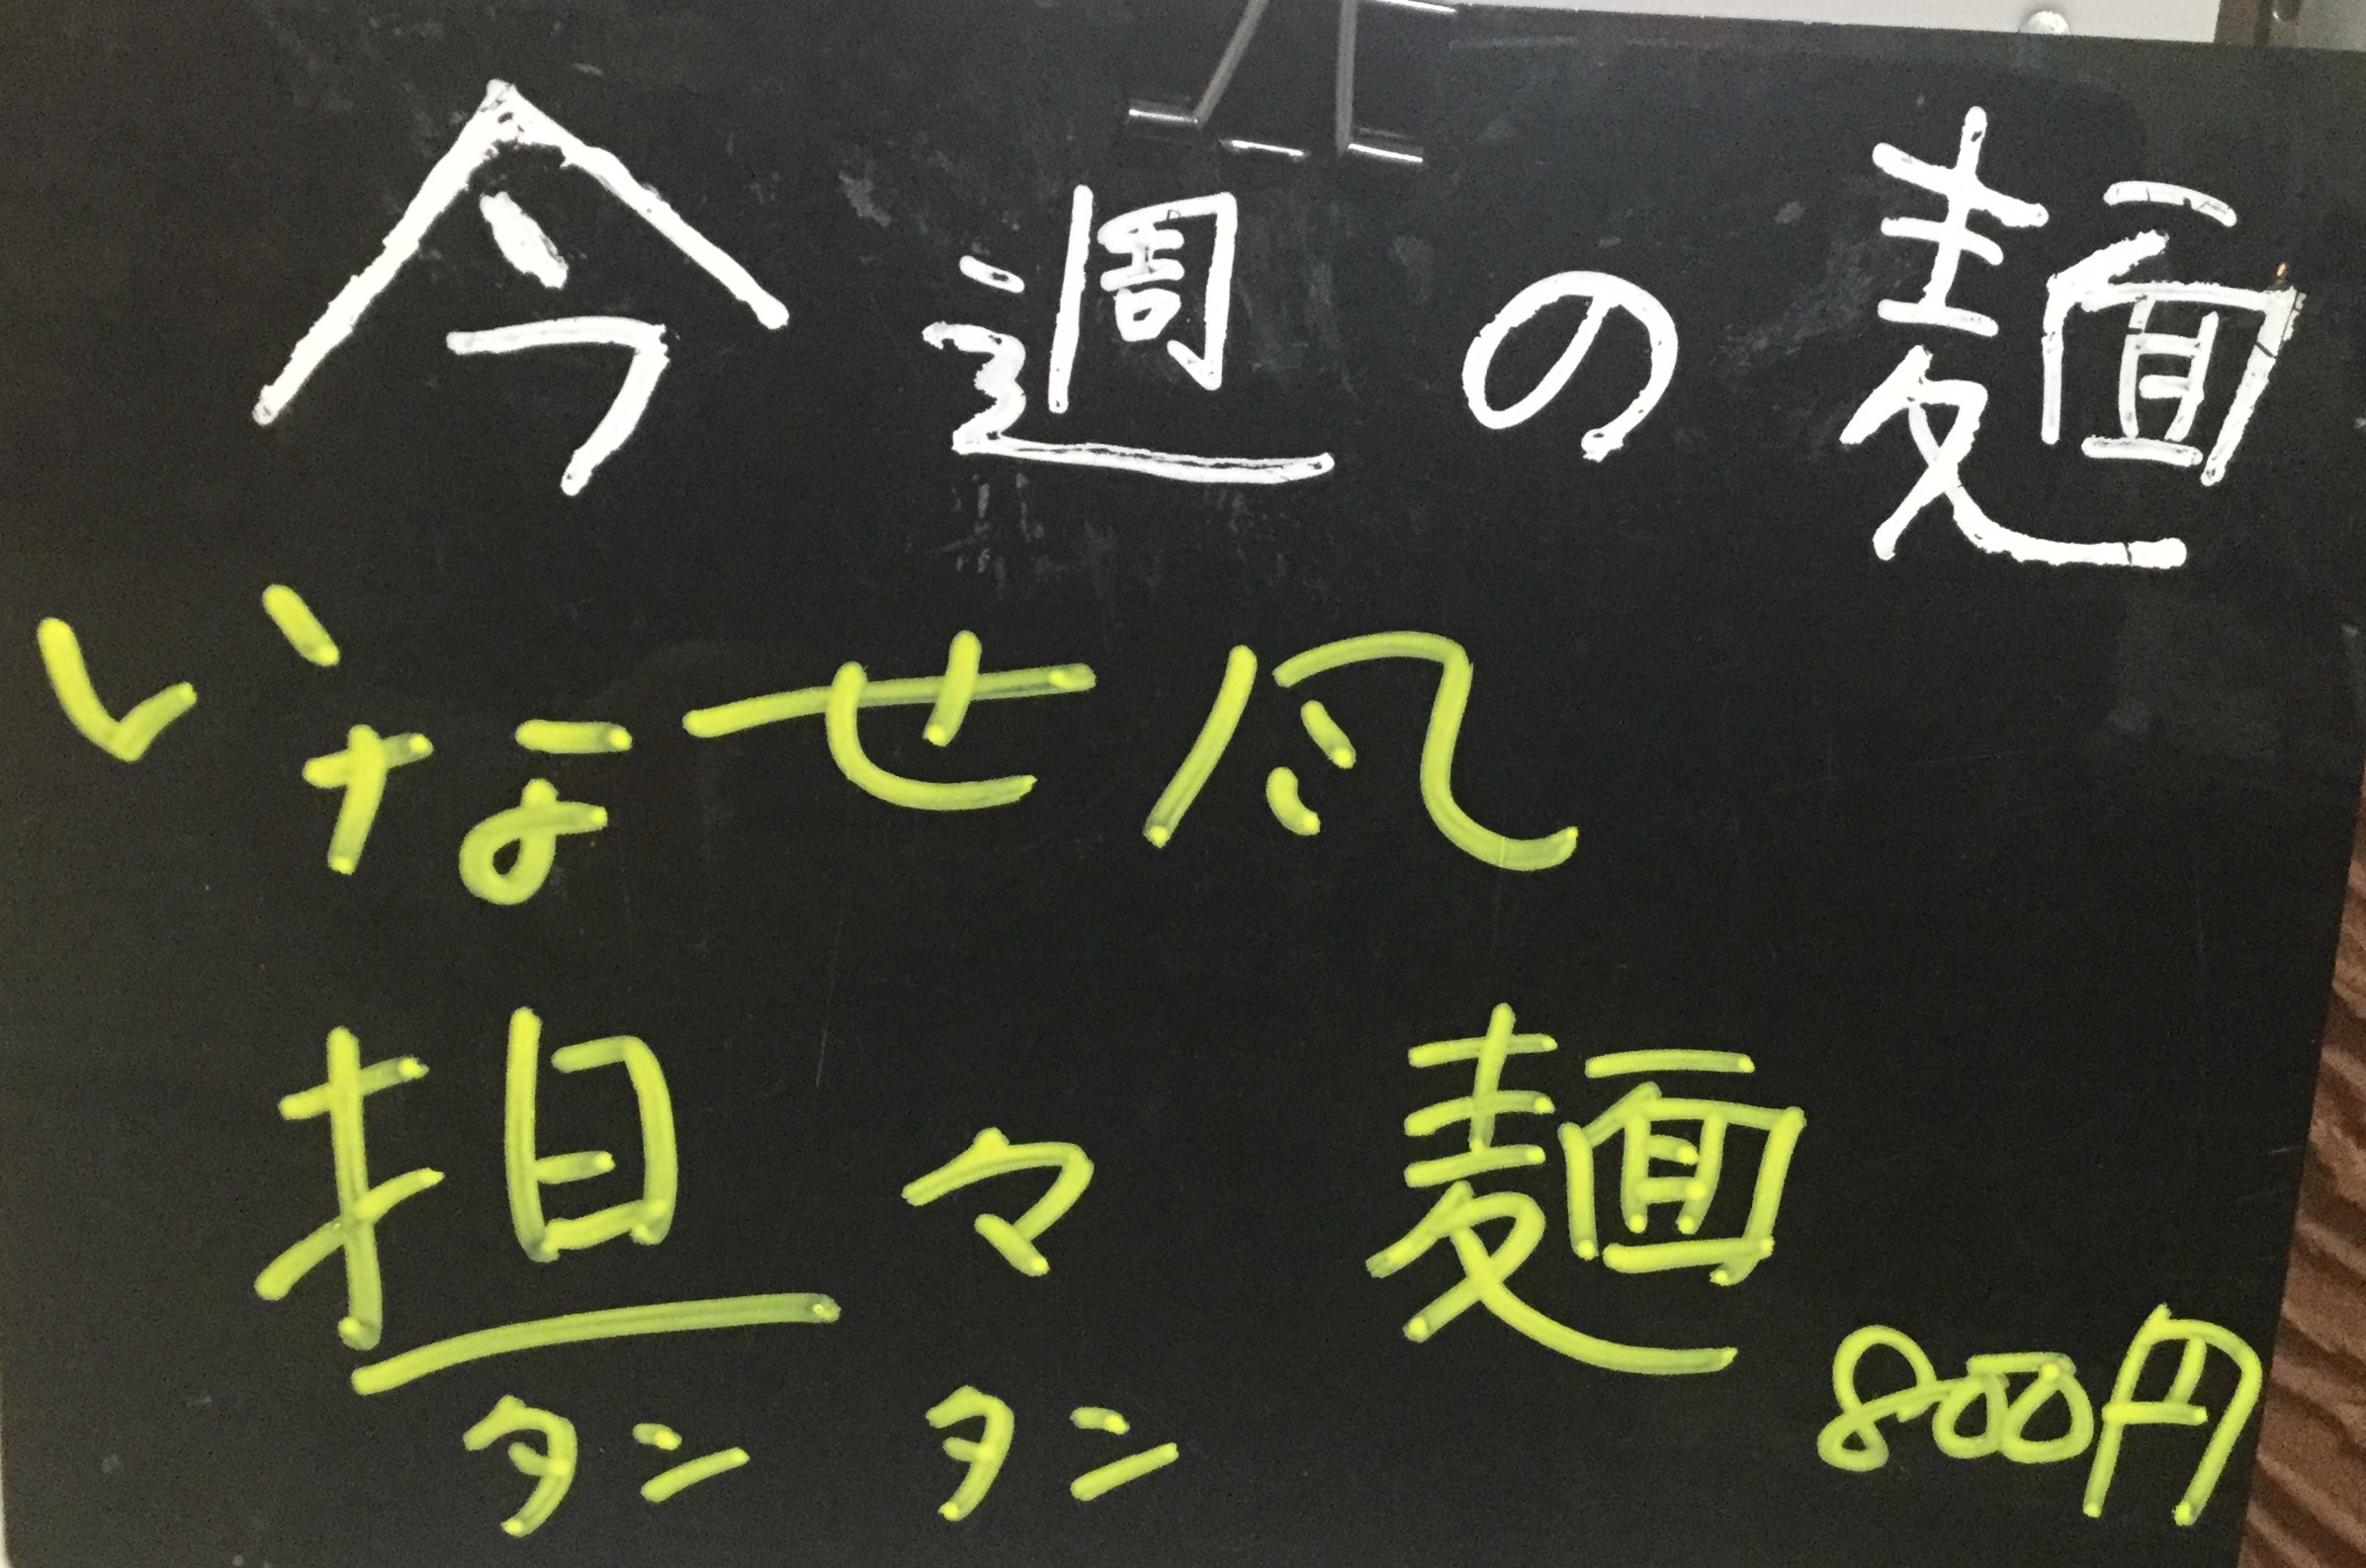 今週の麺
いなせ風
担々麺 800円
タンタン